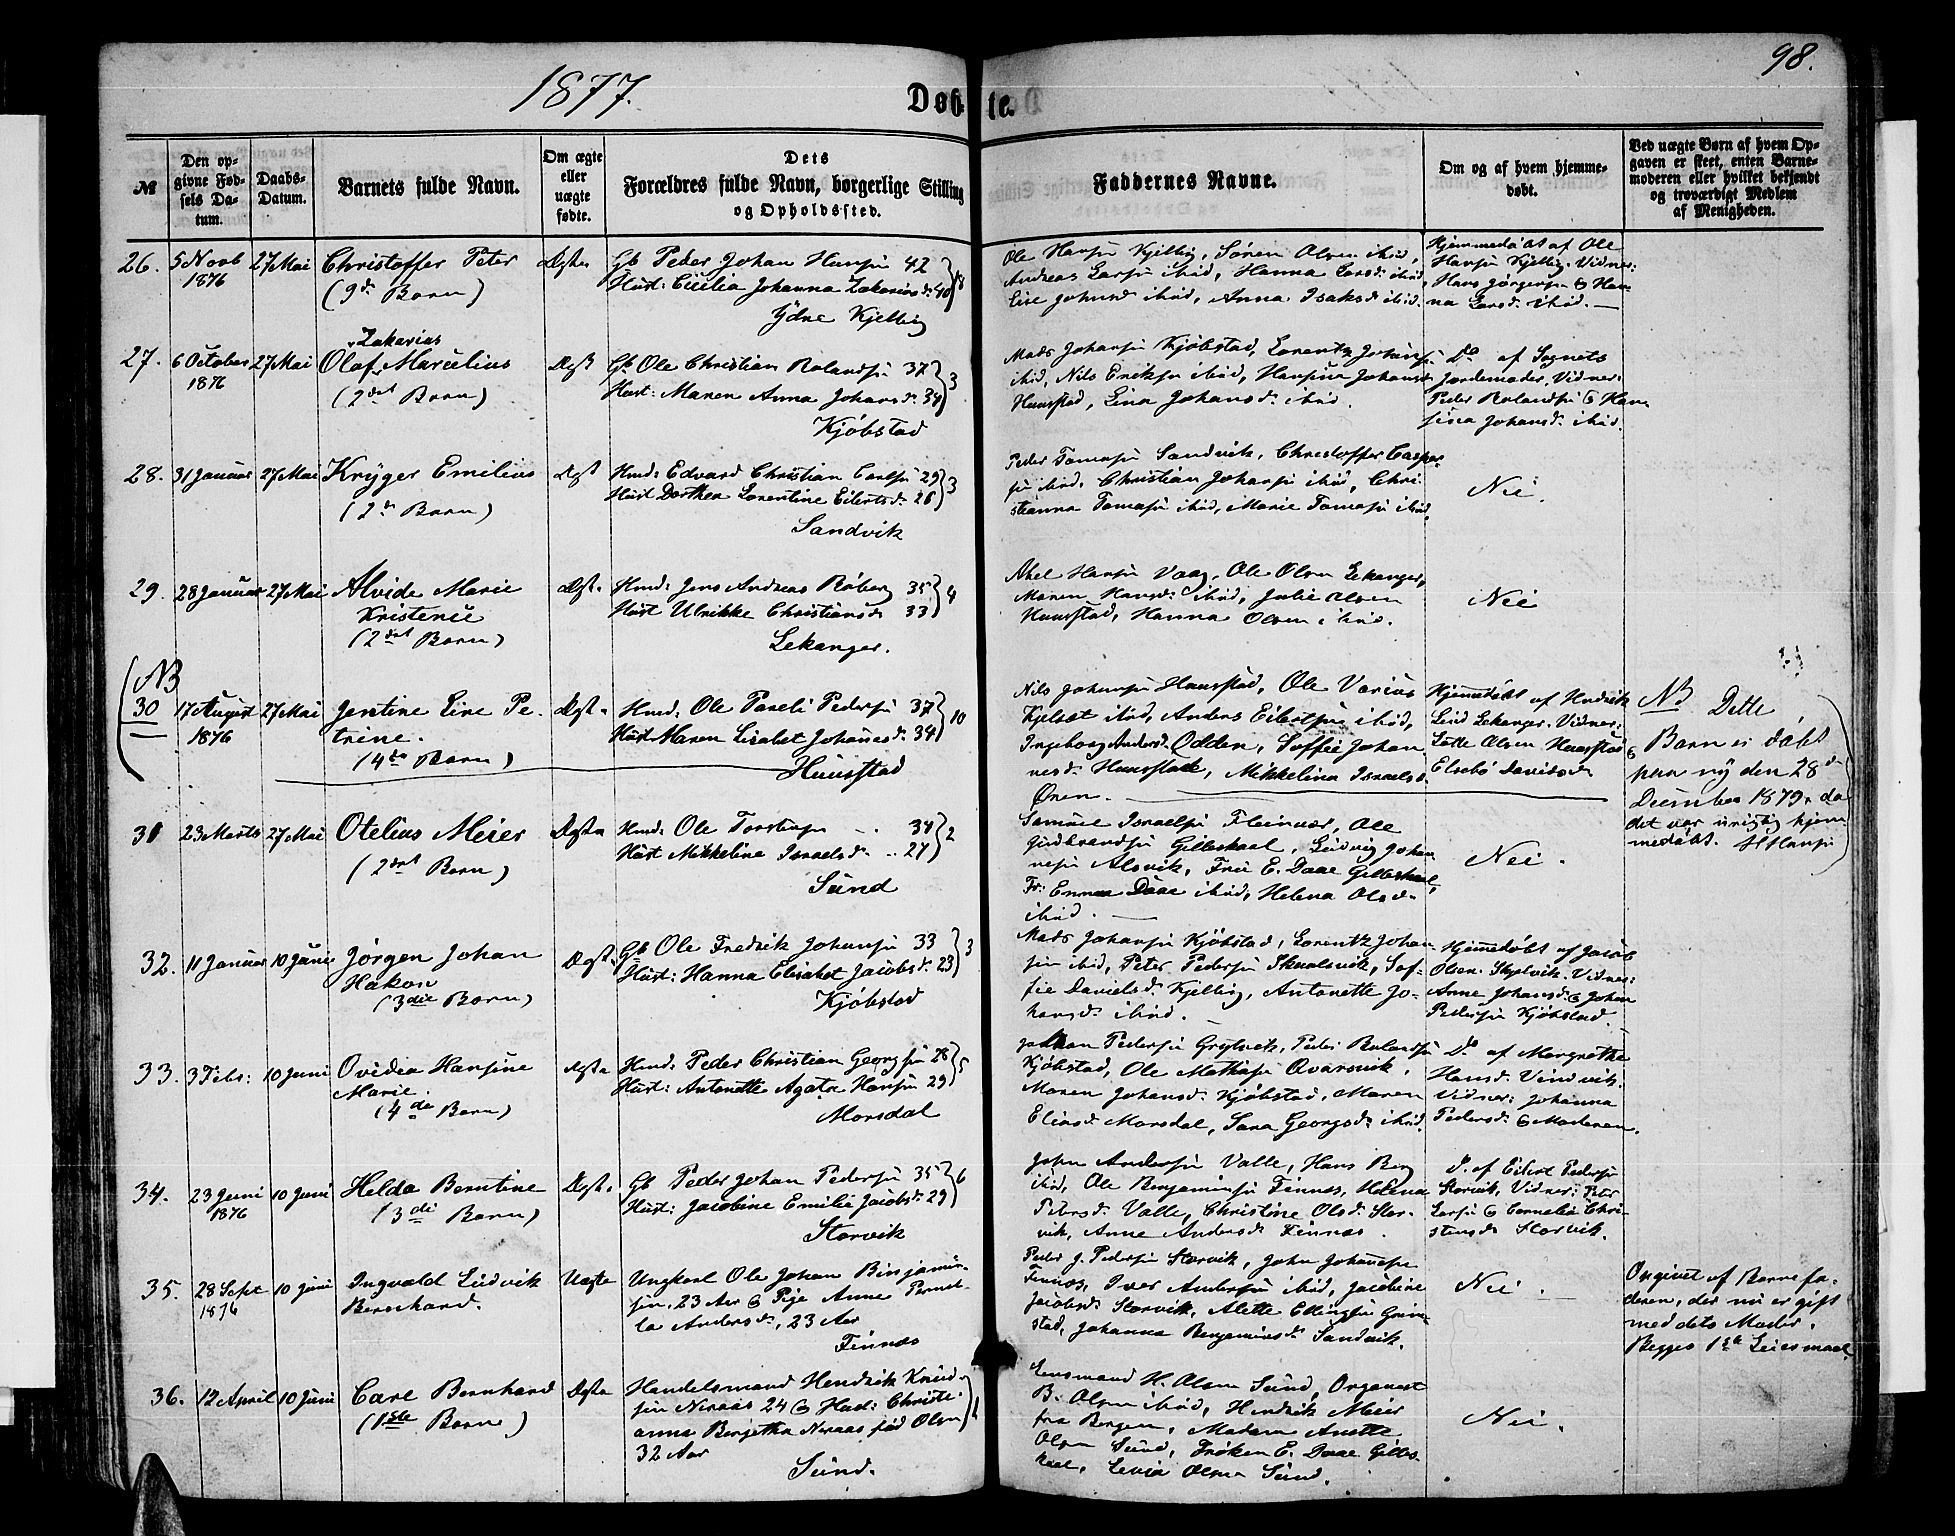 1877.
Døbte.
98.
№
Den op-
givne Fød-
sels Da-
tum.
Daabs-
Datum.
Barnets fulde Navn.
Om ægte
eller
uægte
fødte.
Dets
Forældres fulde Navn, borgerlige Stilling
og Opholdssted.
Faddernes Navne.
Om og af hvem hjemme-
døbt.
Ved uægte Børn af hvem Op-
gaven er skeet, enten Barne-
moderen eller hvilket bekjendt
og troværdigt Medlem
af Menigheden.
26.
5 Novb
1876
27 Mai
Christoffer Peter
(9de Barn)
Ægte
Gb Peder Johan Hansen 42
Hust: Cicilia Johanna Zakariasd: 40
Ydre Kjelling
Ole Hansen Kjelling, Søren Olsen ibid,
Andreas Larsen ibid, Hanna Larsd: ibid,
Anna Isaksd: ibid.
Hjemmedøbt af Ole
Hansen Kjelling. Vidner:
Hans Jørgensen & Han-
na Larsd: ibid.
27.
6 October
1876
27 Mai
Zakarias
Olaf Marcelius
(2det Barn)
Ægt
Gb Ole Christian Rolandsen 37
Hust: Maren Anna Johansd: 34
3
Kjøbstad
Mads Johansen Kjøbstad, Lorentz Johansen
ibid, Nils Eriksen ibid, Hansina Johansd:
Huusstad, Lina Johansd: ibid.
Do af Sognets
Jordemoder. Vidner:
Peder Rolandsen & Han-
sina Johansd: ibid.
28.
31 Januar
27 Mai
Kryger Emilius
(2de Barn)
Ægt
Hmd: Edvard Christian Carlsen 29
Hust Dorthea Lorentine Eilertsd: 26
3
Sandvik
Peder Tomasen Sandvik, Christoffer Casper-
sen ibid, Christian Johansen ibid, Chri-
stianna Tomasen ibid, Marie Tomasen ibid.
Nei.
29.
28 Januar
27 Mai
Alvide Marie
Kristence
(2det Barn)
Ægte
Hmd: Jens Andreas Røberg 35
Hust Ulrikke Christiansd: 33
4
Lekanger.
Axel Hansen Vaag, Ole Olsen Lekanger,
Maren Hansd: ibid, Julie Olsen
Huusstad, Hanna Olsen ibid.
Nei
NB
30
17 August
1876
27 Mai
Jentine Line Pe-
trine.
(4de Barn)
Ægte
Hmd: Ole Pareli Pedersen 37
Hust Maren Lisabet Johanesd: 34
10
Huusstad
Nils Johansen Huusstad, Ole Varius
ibid, Anders Eilertsen ibid,
Ingeborg Andersd: Odden, Soffie Johan-
nesd: Huusstad, Mikkelina Israelsd:
Øren.
Hjemmedøbt af Hendrik
Lind Lekanger. Vidner:
Lotte Olsen Huusstad &
Elsebø Davidsd:
NB Dette
Barn er døbt
paa ny den 28de
December 1879, da
det var urigtig hjem-
medøbt. H Hansen
31
23 Marts
27 Mai
Otelius Meier
(2det Barn)
Ægte
Hmd: Ole Torstensen 34
Hust Mikkeline Israelsd: 27
2
Sund
Samuel Israelsen Fleinvær, Ole
Gudbrandsen Gilleskaal, Ludvig Johan-
nesen Alsvik, Frue E. Daae Gilleskaal,
Fr: Emma Daae ibid, Helena Olsd:
ibid.
Nei.
32.
11 Januar
10 Juni
Jørgen Johan
Håkon
(3die Barn)
Ægte
Gb Ole Fredrik Johansen 33
Hust: Hanna Elisabet Jacobsd: 23
3
Kjøbstad
Mads Johansen Kjøbstad, Lorentz Johan-
sen ibid, Peter Pedersen Skaalsvik, Sof-
fie Danielsd: Kjelling, Antonette Jo-
hansd: ibid.
Hjemmedøbt af Jacob
Olsen Skjelvik. Vidner:
Anne Johansd: & Johan
Pedersen Kjøbstad.
33.
3 Febr:
10 Juni
Ovidia Hansine
Marie.
(4de Barn)
Ægte
Hmd: Peder Christian Georgsen 28
Hust: Antonette Agata Hansen 29
5
Morsdal
Johan Pedersen Grytvik, Peder Rolandsen
Kjøbstad, Ole Mathisen Qvarsvik,
Maren Johansd: Kjøbstad, Maren
Eliasd: Morsdal, Sara Georgsd: ibid.
Do af Margrethe
Hansd: Vindvik.
Vidner: Johanna
Pedersd: & Moderen.
34.
23 Juni
1876
10 Juni
Helda Berntine
(3die Barn)
Ægte
Gb Peder Johan Pedersen 35
Hust: Jacobine Emilie Jacobsd: 29
6
Storvik
John Andersen Valle, Hans Berg
ibid, Ole Benjaminsen Finnes, Helena
Petersd: Valle, Christine Olsd: Stor-
vik, Anne Andersd: Finnes.
D. af Eilert Pedersen
Storvik, Vidner: Peter
Larsen & Cornelia Chri-
stensd: Storvik.
35.
28 Sept
1876
10 Juni
Ingvald Ludvik
Bernhard.
Uægte
Ungkarl Ole Johan Binjamin-
sen, 23 Aar & Pige Anne Pernel-
la Andersd:, 23 Aar
Finnæs
Peder J. Pedersen Storvik, John Johansen
Finnæs, Iver Andersen ibid, Jacobine
Jacobsd: Storvik, Alette Ellingsen Grim-
stad, Johanna Benjaminsd: Sandvik.
Nei.
Opgivet af Barnefa-
deren, der nu er gift
med dets Moder.
Begges 1ste Leiermaal.
36.
12 April
10 Juni
Carl Bernhard
(1ste Barn)
Ægte
Handelsmand Hendrik Knud-
sen Neraas 24 & Hust: Christi-
anna Bergetha Neraas fød Olsen
32 Aar
1
Sund.
Lensmand H. Olsen Sund, Organist
B. Olsen ibid, Hendrik Meier
fra Bergen, Madam Anette
Olsen Sund, Frøken E. Daae Gilles-
kaal, Olsen Sund.
Nei.